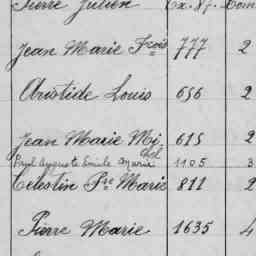 Pierre Julien Ex. Nf. Com
Jean Marie Frois 777 2
Aristide Louis 656 2
Jean Marie Mj. 615 2
Auguste Emile Marie 1105 3
Célestin Pre Marie 811 2
Pierre Marie 1635 4